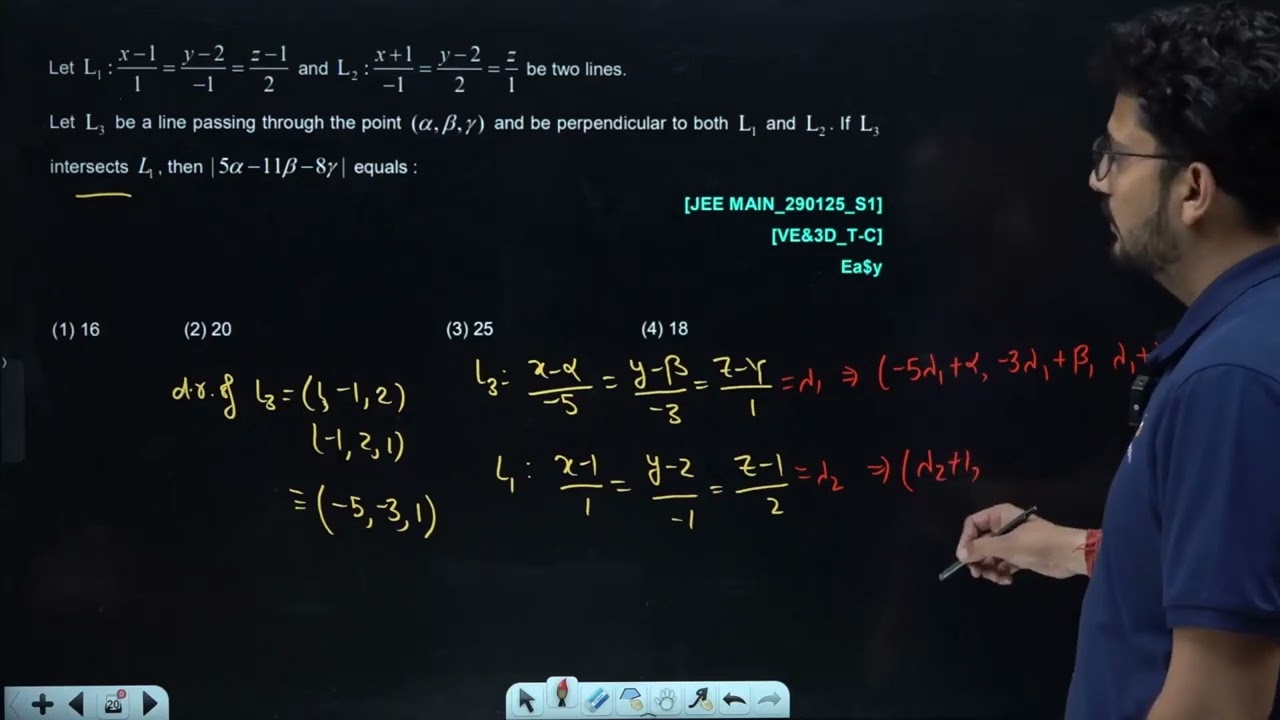 Let L₁ : (x−1)/1 = (y−2)/−1 = (z−1)/2 and L₂ : (x+1)/−1 = (y−2)/2 = z/1 be two lines.
Let L₃ be a line passing through the point (α, β, γ) and be perpendicular to both L₁ and L₂. If L₃
intersects L₁, then |5α−11β−8γ| equals :
[JEE MAIN_290125_S1]
[VE&3D_T-C]
Ea$y
(1) 16 (2) 20 (3) 25 (4) 18
d.r. of L₃ = (1, -1, 2)
(-1, 2, 1)
≡ (-5, -3, 1)
L₃: (x-α)/-5 = (y-β)/-3 = (z-γ)/1 = λ₁ ⇒ (-5λ₁+α, -3λ₁+β, λ₁+
L₁ : (x-1)/1 = (y-2)/-1 = (z-1)/2 = λ₂ ⇒ (λ₂+1,
20